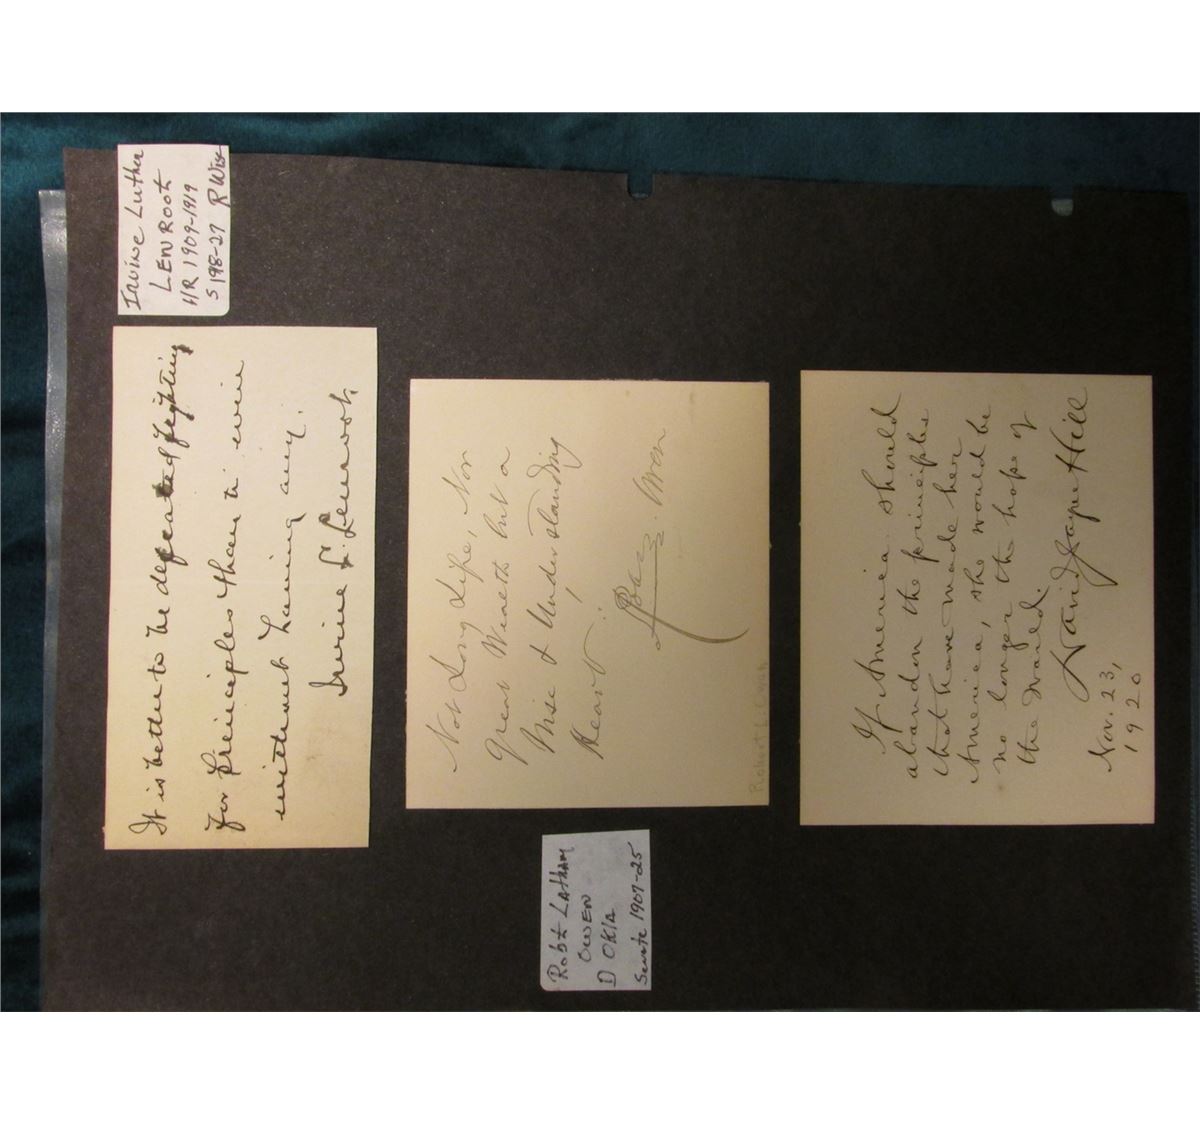 Irvine Luther
LENROOT
HR 1909-1919
S 198-27 R Wis
It is better to be defeated fighting
for principles than to win
without having any.
Irvine L. Lenroot.
Not Long Life, Nor
great Wealth but a
Wise & Understanding
Heart!
Owen
Robert L. Owen
Robt LATHAM
OWEN
D OKLA
Senate 1907-25
If America should
abandon the principles
that have made her
America, she would be
no longer the hope of
the world.
David Jayne Hill
Nov. 23,
1920